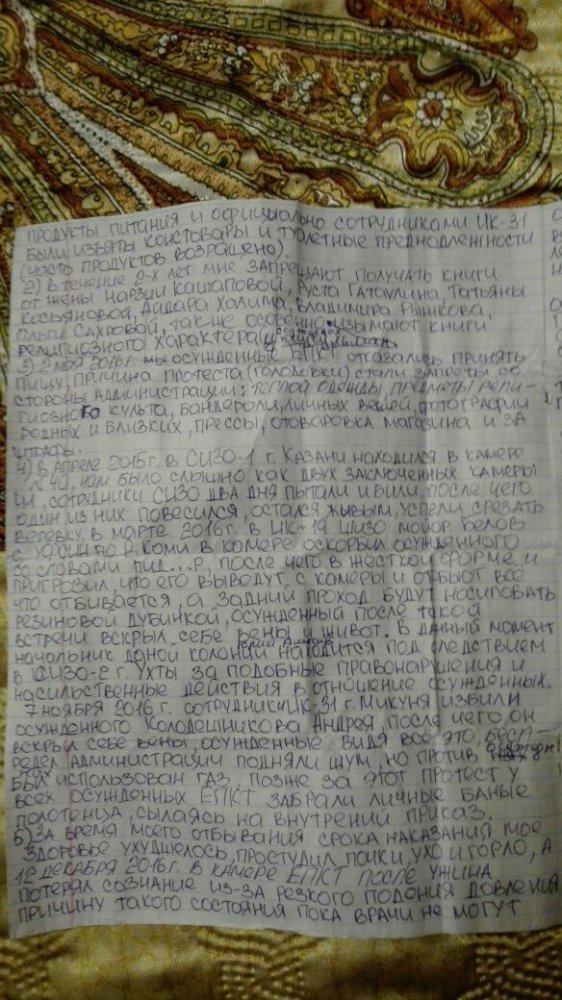 ПРОДУКТЫ ПИТАНИЯ И ОФИЦЫАЛЬНО СОТРУДНИКАМИ ИК-31
БЫЛИ ИЗЪЯТЫ КОНСТОВАРЫ И ТУАЛЕТНЫЕ ПРЕНОДЛЕННОСТИ
(ЧАСТЬ ПРОДУКТОВ ВОЗРАЩЕНО).
2) В ТЕЧЕНИЕ 2-Х ЛЕТ МНЕ ЗАПРЕЩАЮТ ПОЛУЧАТЬ КНИГИ
ОТ ЖЕНЫ НАРЗИИ КАШАПОВОЙ, РУСТА ГАТАУЛИНА, ТАТЬЯНЫ
КОСЬЯНОВОЙ, АЙДАРА ХАЛИМА, ВЛАДИМИРА РЫЖКОВА,
ОЛЬГИ САХРОВОЙ, ТАК ЖЕ ОСОБЕННО ИЗЫМАЮТ КНИГИ
РЕЛИГИОЗНОГО ХАРАКТЕРА
3) 2 МАЯ 2016г. МЫ ОСУЖДЕННЫЕ ЕПКТ ОТКАЗАЛИСЬ ПРИНЯТЬ
ПИЩУ, ПРИЧИНА ПРОТЕСТА (ГОЛОДОВКИ) СТАЛИ ЗАПРЕТЫ СО
СТОРОНЫ АДМИНИСТРАЦИИ: ТЕПЛОЙ ОДЕЖДЫ, ПРЕДМЕТЫ РЕЛИ-
ГИОЗНОГО КУЛЬТА, БАНДЕРОЛИ, ЛИЧНЫХ ВЕЩЕЙ, ФОТОГРАФИИ
РОДНЫХ И БЛИЗКИХ, ПРЕССЫ, ОТОВАРОВКА МАГАЗИНА И ЗА
4) В АПРЕЛЕ 2015г. В СИЗО-1 г. КАЗАНИ НАХОДИЛСЯ В КАМЕРЕ
№40, НАМ БЫЛО СЛЫШНО КАК ДВУХ ЗАКЛЮЧЕННЫХ КАМЕРЫ
СОТРУДНИКИ СИЗО ДВА ДНЯ ПЫТАЛИ И БИЛИ, ПОСЛЕ ЧЕГО
ОДИН ИЗ НИХ ПОВЕСИЛСЯ, ОСТАЛСЯ ЖИВЫМ, УСПЕЛИ СРЕЗАТЬ
ВЕРЕВКУ, В МАРТЕ 2016г. В ИК-19 ШИЗО МОЙОР БЕЛОВ
С УФСИН ПО Р. КОМИ В КАМЕРЕ ОСКОРБИЛ ОСУЖДЕННОГО
СО СЛОВАМИ ПИД...Р, ПОСЛЕ ЧЕГО В ЖЕСТКОЙ ФОРМЕ, И
ПРИГРОЗИЛ, ЧТО ЕГО ВЫВЕДУТ С КАМЕРЫ И ОТБЬЮТ ВСЕ
ЧТО ОТБИВАЕТСЯ, А ЗАДНИЙ ПРОХОД БУДУТ НОСИЛОВАТЬ
РЕЗИНОВОЙ ДУБИНКОЙ, ОСУЖДЕННЫЙ ПОСЛЕ ТАКОЙ
ВСТРЕЧИ ВСКРЫЛ СЕБЕ ВЕНЫ И ЖИВОТ. В ДАННЫЙ МОМЕНТ
НАЧАЛЬНИК ДАНОЙ КОЛОНИИ НАХОДИТСЯ ПОД СЛЕДСТВИЕМ
В СИЗО-2 г. УХТЫ ЗА ПОДОБНЫЕ ПРАВОНАРУШЕНИЯ И
НАСИЛЬСТВЕННЫЕ ДЕЙСТВИЯ В ОТНОШЕНИЕ ОСУЖДЕННЫХ.
7 НОЯБРЯ 2016г. СОТРУДНИКИ ИК-31 г. МИКУНЯ ИЗБИЛИ
ОСУЖДЕННОГО КОЛОДЕШНИКОВА АНДРЕЯ, ПОСЛЕ ЧЕГО ОН
ВСКРЫЛ СЕБЕ ВЕНЫ, ОСУЖДЕННЫЕ ВИДЯ ВСЕ ЭТО, БЕСП-
РЕДЕЛ АДМИНИСТРАЦИИ ПОДНЯЛИ ШУМ, НО ПРОТИВ
БЫЛ ИСПОЛЬЗОВАН ГАЗ. ПОЗЖЕ ЗА ЭТОТ ПРОТЕСТ У
ВСЕХ ОСУЖДЕННЫХ ЕПКТ ЗАБРАЛИ ЛИЧНЫЕ БАНЫЕ
ПОЛОТЕНЦА, СЫЛАЯСЬ НА ВНУТРЕНИЙ ПРИКАЗ.
5) ЗА ВРЕМЯ МОЕГО ОТБЫВАНИЯ СРОКА НАКАЗАНИЯ МОЁ
ЗДОРОВЬЕ УХУДШЕЛОСЬ, ПРОСТУДИЛ ПОЧКИ, УХО И ГОРЛО, А
12 ДЕКАБРЯ 2016г. В КАМЕРЕ ЕПКТ ПОСЛЕ УЖИНА
ПОТЕРЯЛ СОЗНАНИЕ ИЗ-ЗА РЕЗКОГО ПОДЕНИЯ ДАВЛЕНИЯ
ПРИЧИНУ ТАКОГО СОСТОЯНИЯ ПОКА ВРАЧИ НЕ МОГУТ